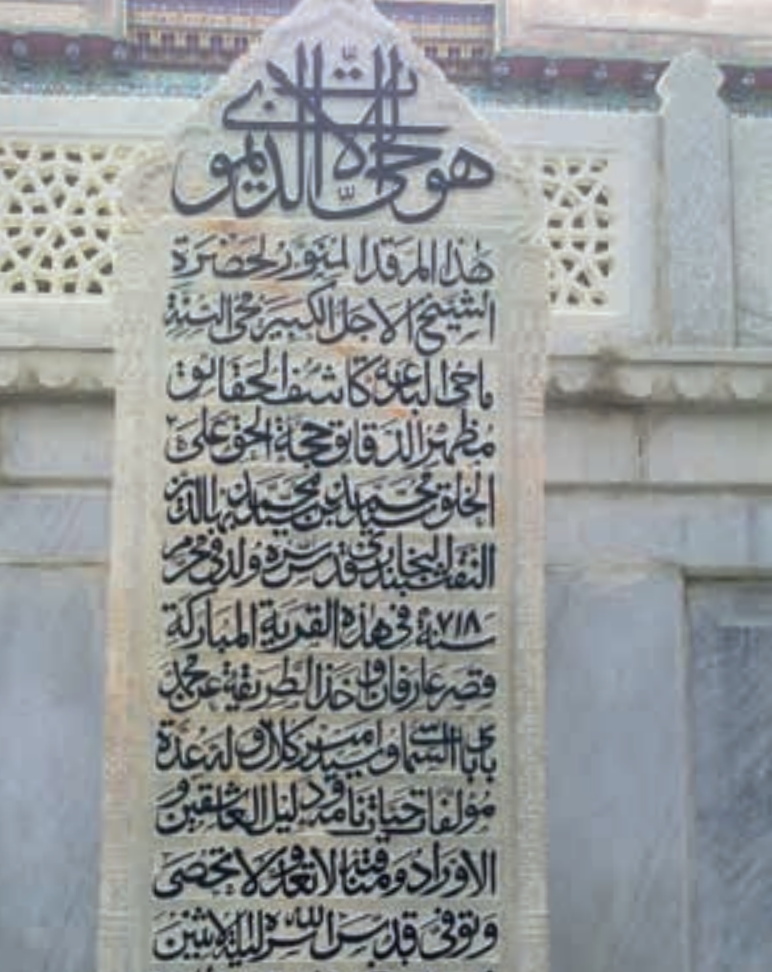 هو الحي الذي لا يموت
هذا المرقد المنور لحضرة
الشيخ الاجل الكبير محي السنة
ماحي البدعة كاشف الحقائق
مظهر الدقائق حجة الحق على
الخلق سيد محمد بن سيد محمد بهاء الدين
النقشبند البخاري قدس سره ولد في محرم
سنة ٧١٨ في هذه القرية المباركة
قصر عارفان و اخذ الطريقة عن محمد
بابا السماسي و سيد امير كلال و له عدة
مؤلفات حيات نامه و دليل العاشقين و
الاوراد و مناقبه لا تعد و لا تحصى
و توفي قدس الله سره ليلة الاثنين